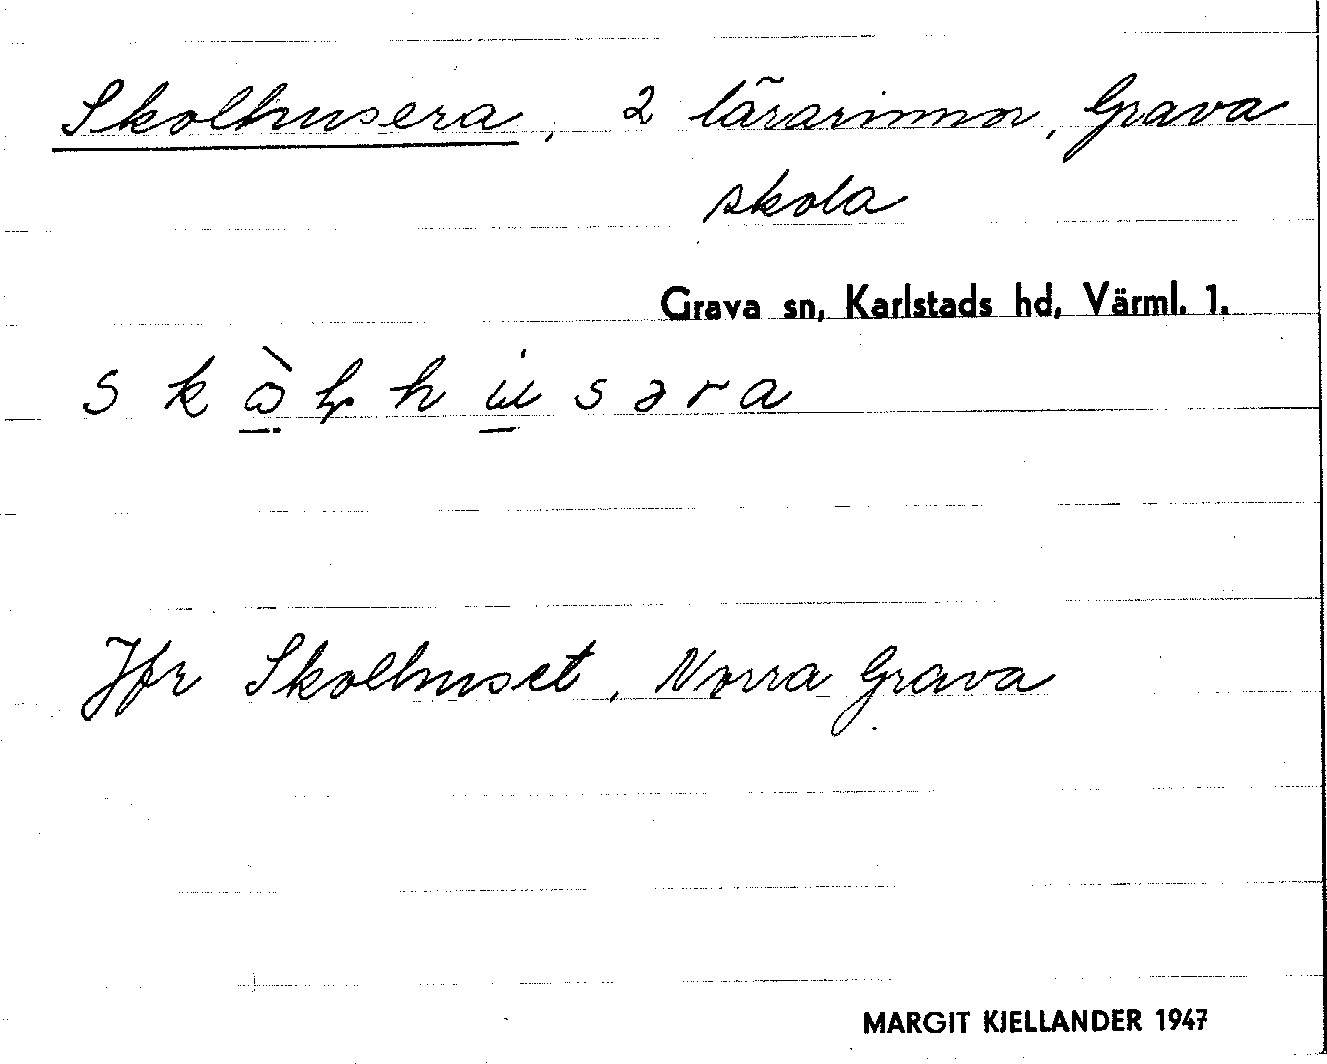 Skolhusera, 2 lärarinnor, Grava
skola
Grava sn, Karlstads hd, Värml. 1.
Jfr Skolhuset, Norra Grava
MARGIT KJELLANDER 1947